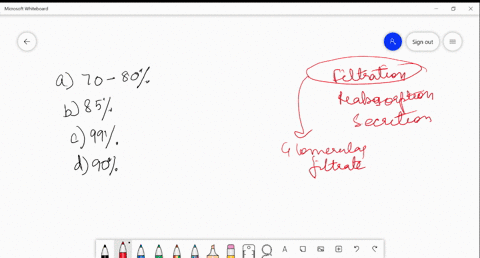 Microsoft Whiteboard
Sign out
a) 70 - 80%
b) 85%
c) 99%
d) 90%
Filtration
Reabsorption
Secretion
Glomerular
filtrate